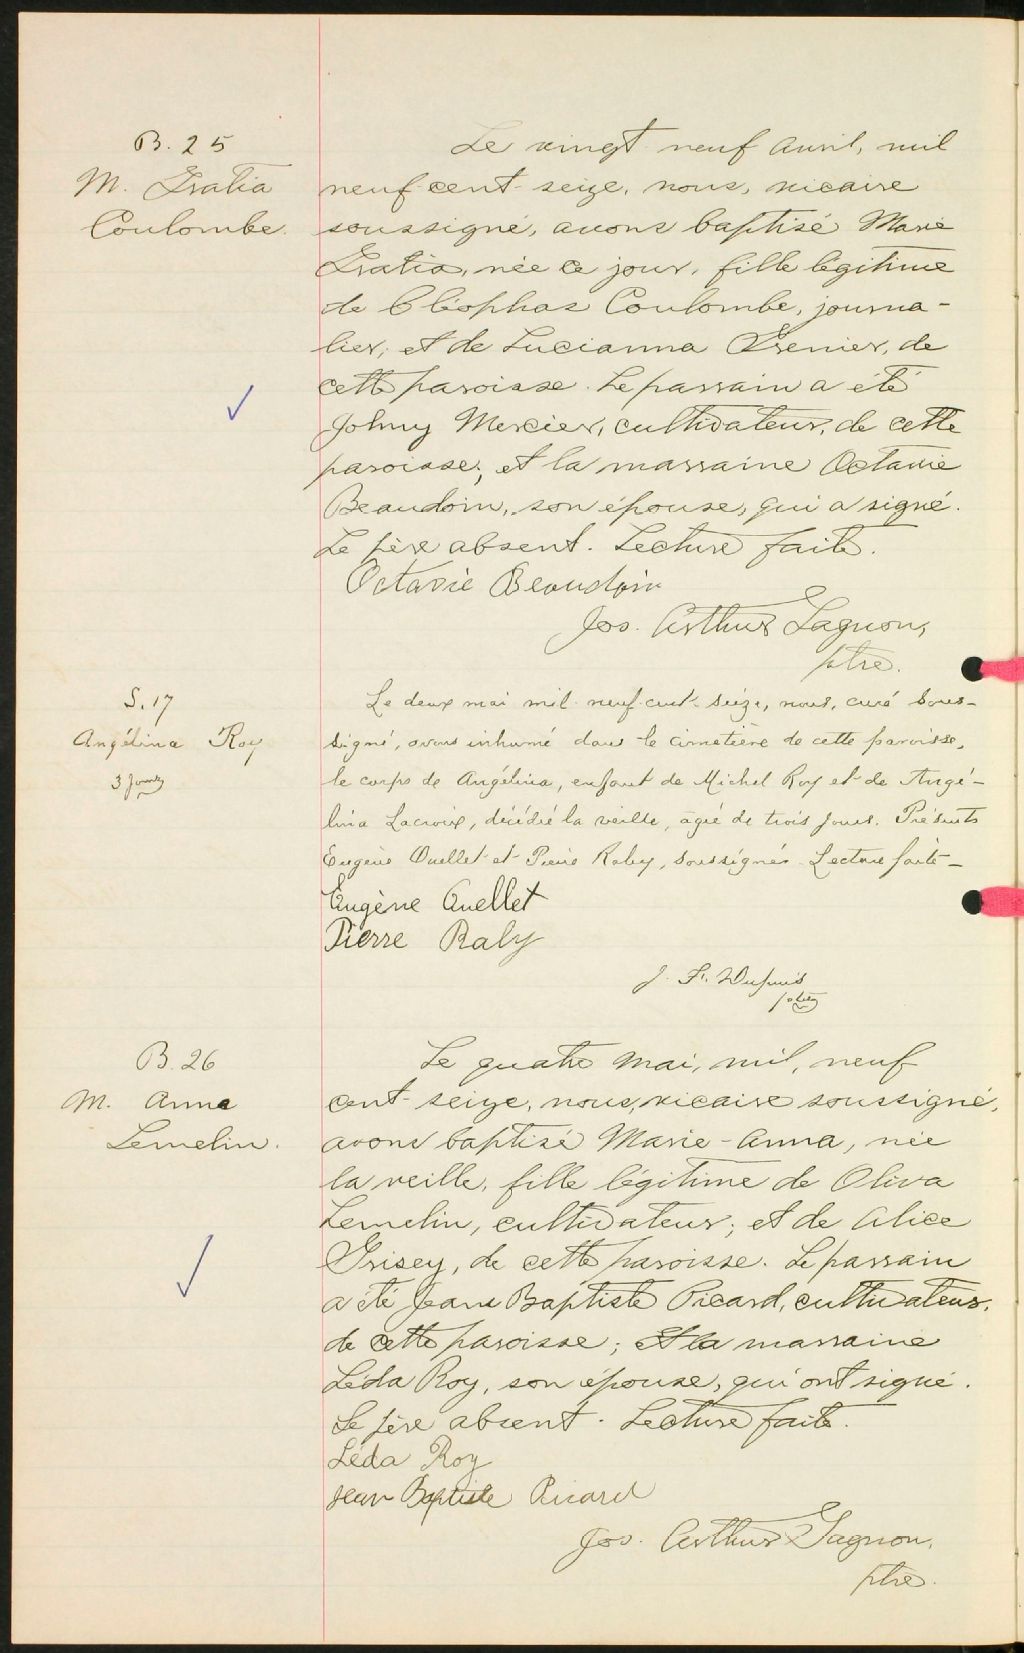 B. 25
M. Gratia
Coulombe.
Le vingt neuf avril, mil
neuf cent seize, nous, vicaire
soussigné, avons baptisé Marie
Gratia, née ce jour, fille légitime
de Cléophas Coulombe, journa-
lier; et de Lucianna Grenier, de
cette paroisse. Le parrain a été
Johny Mercier, cultivateur, de cette
paroisse; et la marraine Octavie
Beaudoin, son épouse, qui a signé.
Le père absent. Lecture faite.
Octavie Beaudoin
Jos. Arthur Gagnon,
ptre.
S. 17
Angélina Roy
3 jours
Le deux mai mil neuf cent seize, nous, curé sous-
signé, avons inhumé dans le cimetière de cette paroisse,
le corps de Angélina, enfant de Michel Roy et de Angé-
lina Lacroix, décédée la veille, agée de trois jours. Présents
Eugène Ouellet et Pierre Raby, soussignés. Lecture faite_
Eugène Ouellet
Pierre Raby
J. F. Dupuis
ptre
B. 26
M. Anna
Lemelin.
Le quatre mai, mil, neuf
cent seize, nous, vicaire soussigné,
avons baptisé Marie-Anna, née
la veille, fille légitime de Oliva
Lemelin, cultivateur; et de Alice
Grisey, de cette paroisse. Le parrain
a été Jean Baptiste Picard, cultivateur,
de cette paroisse; et la marraine
Léda Roy, son épouse, qui ont signé.
Le père absent. Lecture faite.
Léda Roy
Jean Baptiste Picard
Jos. Arthur Gagnon,
ptre.